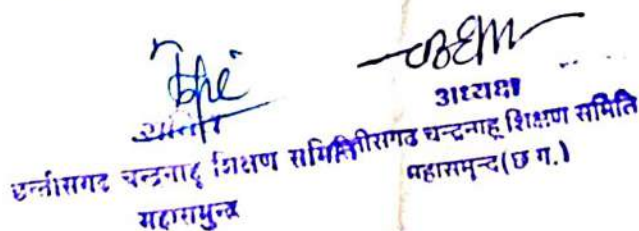 सचिव
छत्तीसगढ चन्द्रनाहू शिक्षण समिति
महासमुन्द
अध्यक्ष
छत्तीसगढ चन्द्रनाहू शिक्षण समिति
महासमुन्द (छ ग.)